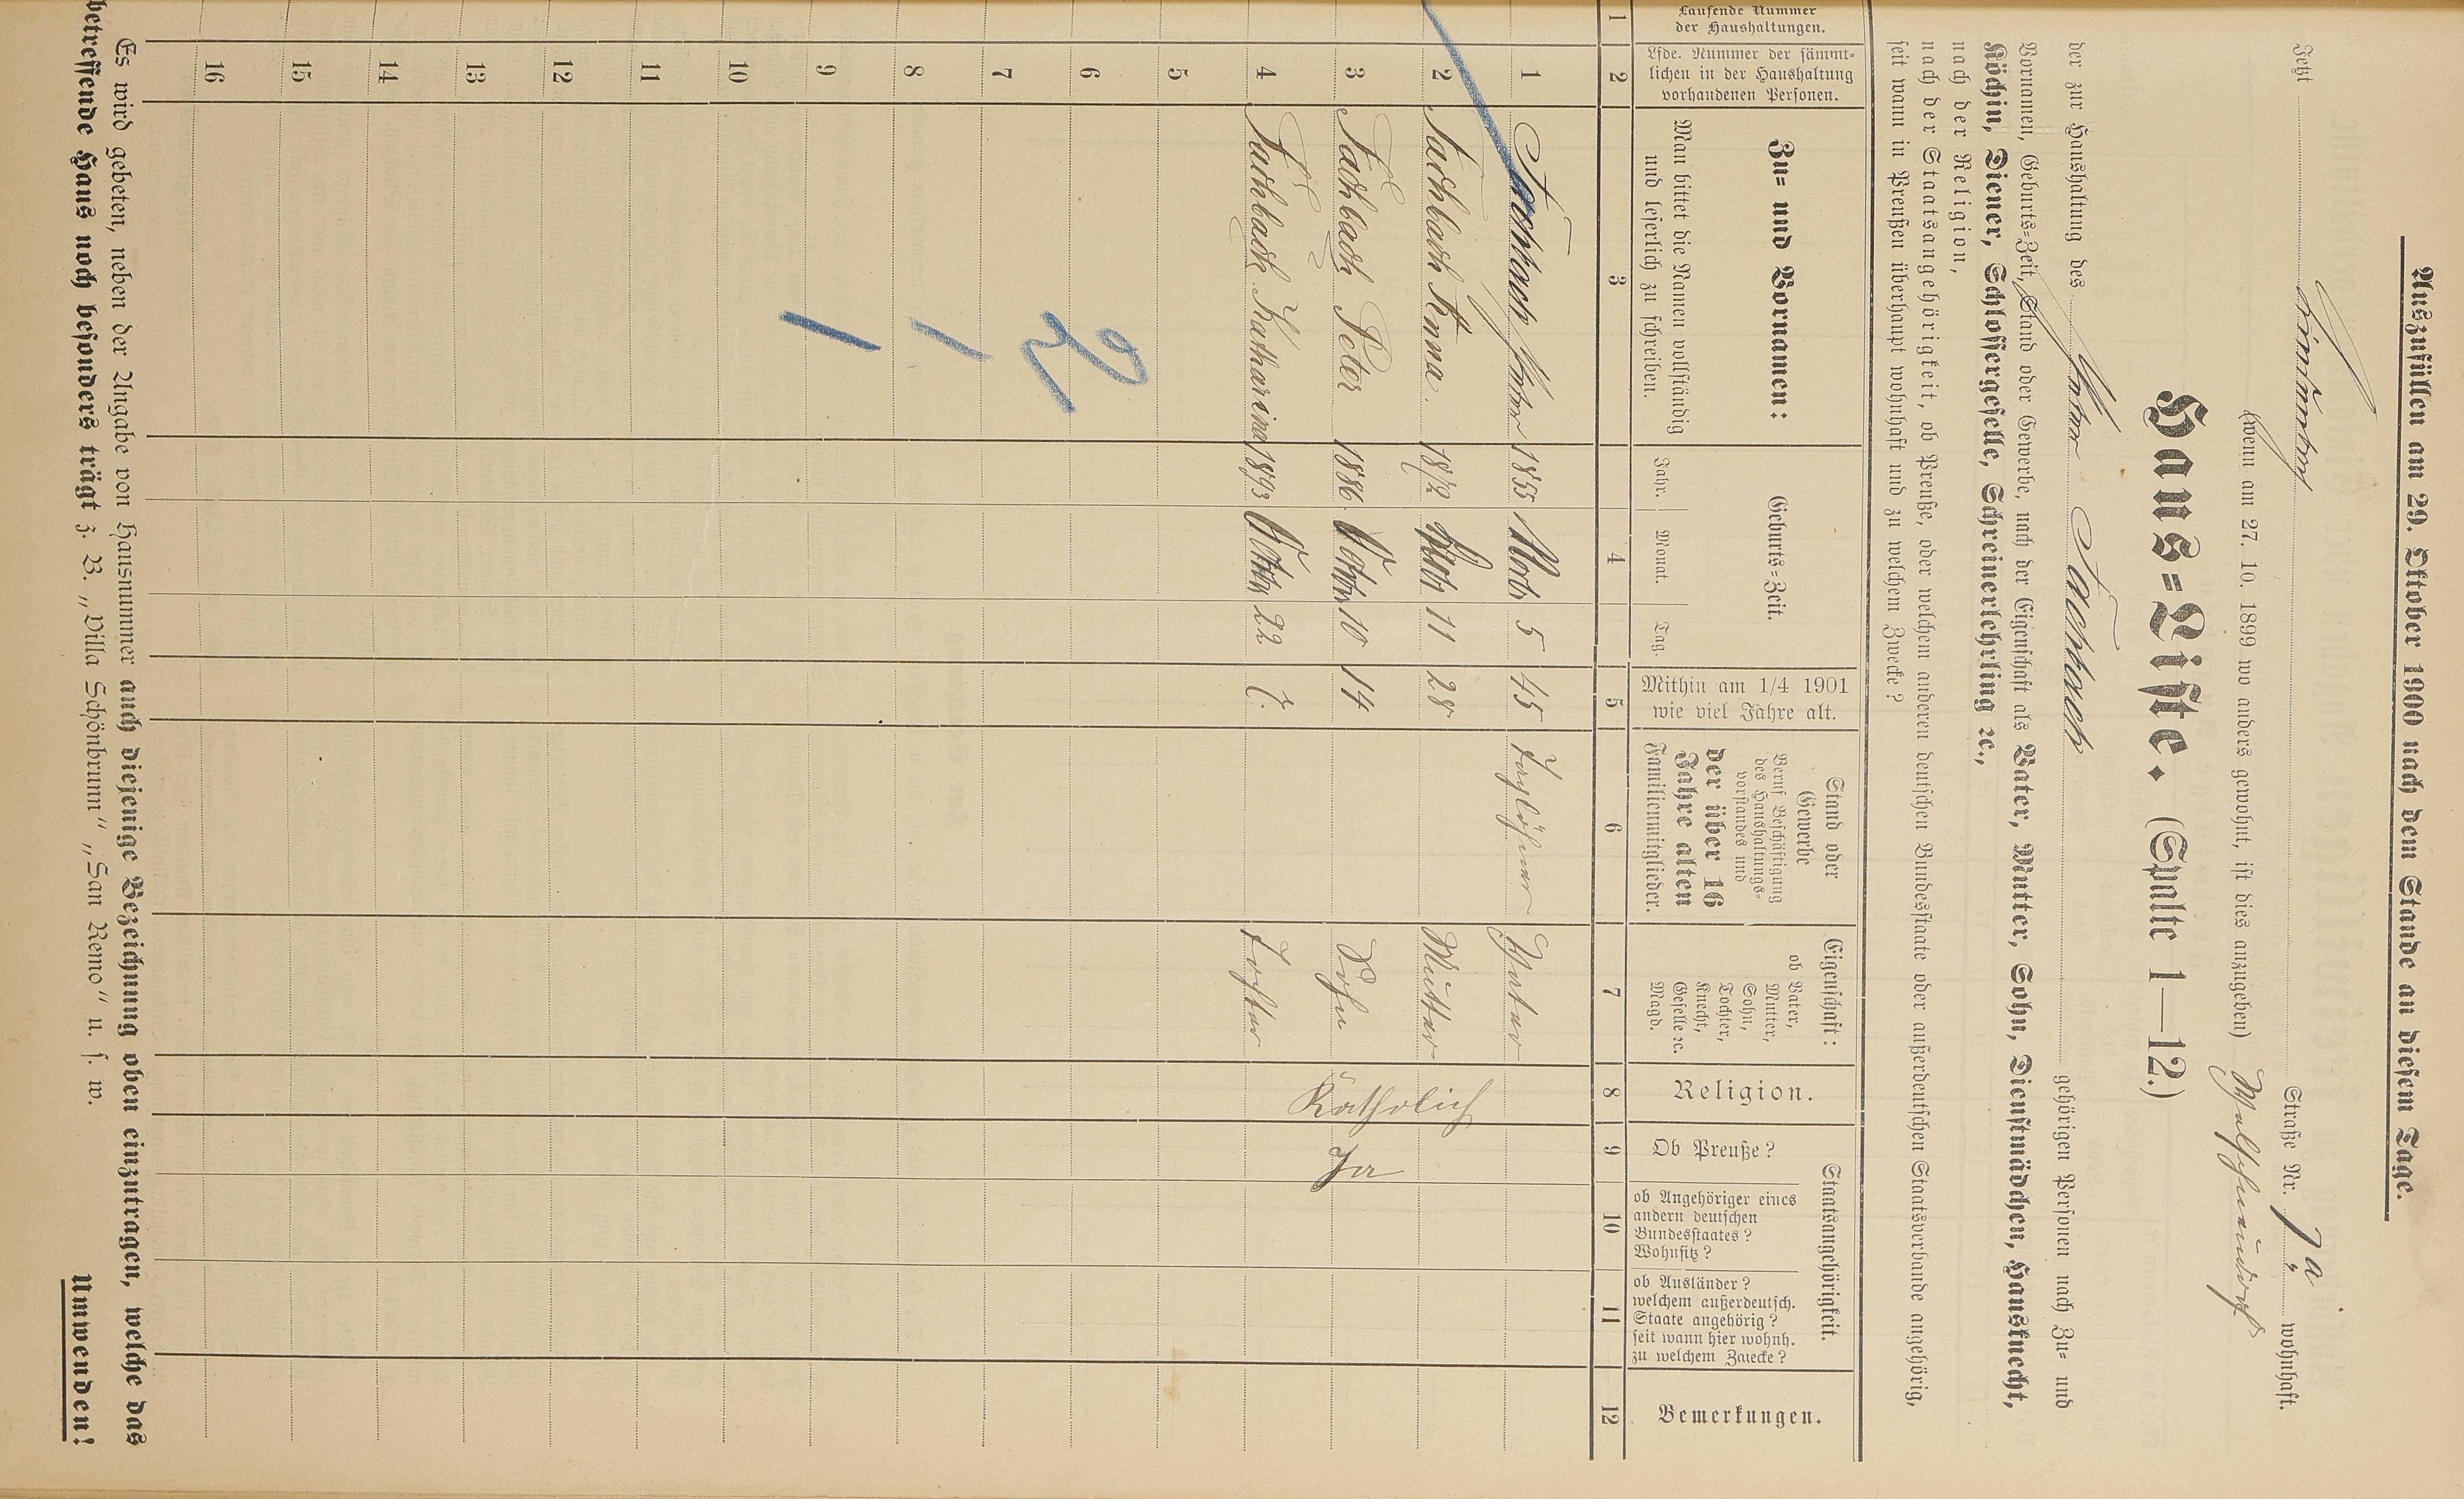 Auszufüllen am 29. Oktober 1900 nach dem Stande an diesem Tage.
Jetzt Straße Nr. 7a wohnhaft.
(wenn am 27. 10. 1899 wo anders gewohnt, ist dies anzugeben)
Haus=Liste. (Spalte 1—12.)
der zur Haushaltung des Peter Fachbach gehörigen Personen nach Zu= und
Vornamen, Geburts=Zeit, Stand oder Gewerbe, nach der Eigenschaft als Vater, Mutter, Sohn, Dienstmädchen, Hausknecht,
Köchin, Diener, Schlossergeselle, Schreinerlehrling ꝛc.,
nach der Religion,
nach der Staatsangehörigkeit, ob Preuße, oder welchem anderen deutschen Bundesstaate oder außerdeutschen Staatsverbande angehörig,
seit wann in Preußen überhaupt wohnhaft und zu welchem Zwecke?
Laufende Nummer
der Haushaltungen.
Lfde. Nummer der sämmt=
lichen in der Haushaltung
vorhandenen Personen.
Zu= und Vornamen:
Man bittet die Namen vollständig
und leserlich zu schreiben.
Geburts=Zeit.
Jahr. Monat. Tag.
Mithin am 1/4 1901
wie viel Jahre alt.
Stand oder
Gewerbe
Beruf Beschäftigung
des Haushaltungs=
vorstandes und
der über 16
Jahre alten
Familienmitglieder.
Eigenschaft:
ob Vater,
Mutter,
Sohn,
Tochter,
Knecht,
Geselle ꝛc.
Magd.
Religion.
Staatsangehörigkeit.
Ob Preuße?
ob Angehöriger eines
andern deutschen
Bundesstaates?
Wohnsitz?
ob Ausländer?
welchem außerdeutsch.
Staate angehörig?
seit wann hier wohnh.
zu welchem Zwecke?
Bemerkungen.
1 2 3 4 5 6 7 8 9 10 11 12
1 Fachbach Peter 1855 5 45 Taglöhner Vater
2 Fachbach Anna 1872 11 28 Mutter
3 Fachbach Peter 1886 10 14 Sohn
4 Fachbach Katharina 1893 22 7. Tochter
Katholich
Ja
5
6
7
8
9
10
11
12
13
14
15
16
2
1
1
Es wird gebeten, neben der Angabe von Hausnummer auch diejenige Bezeichnung oben einzutragen, welche das
betreffende Haus noch besonders trägt z. B. „Villa Schönbrunn" „San Remo" u. s. w.
Umwenden!